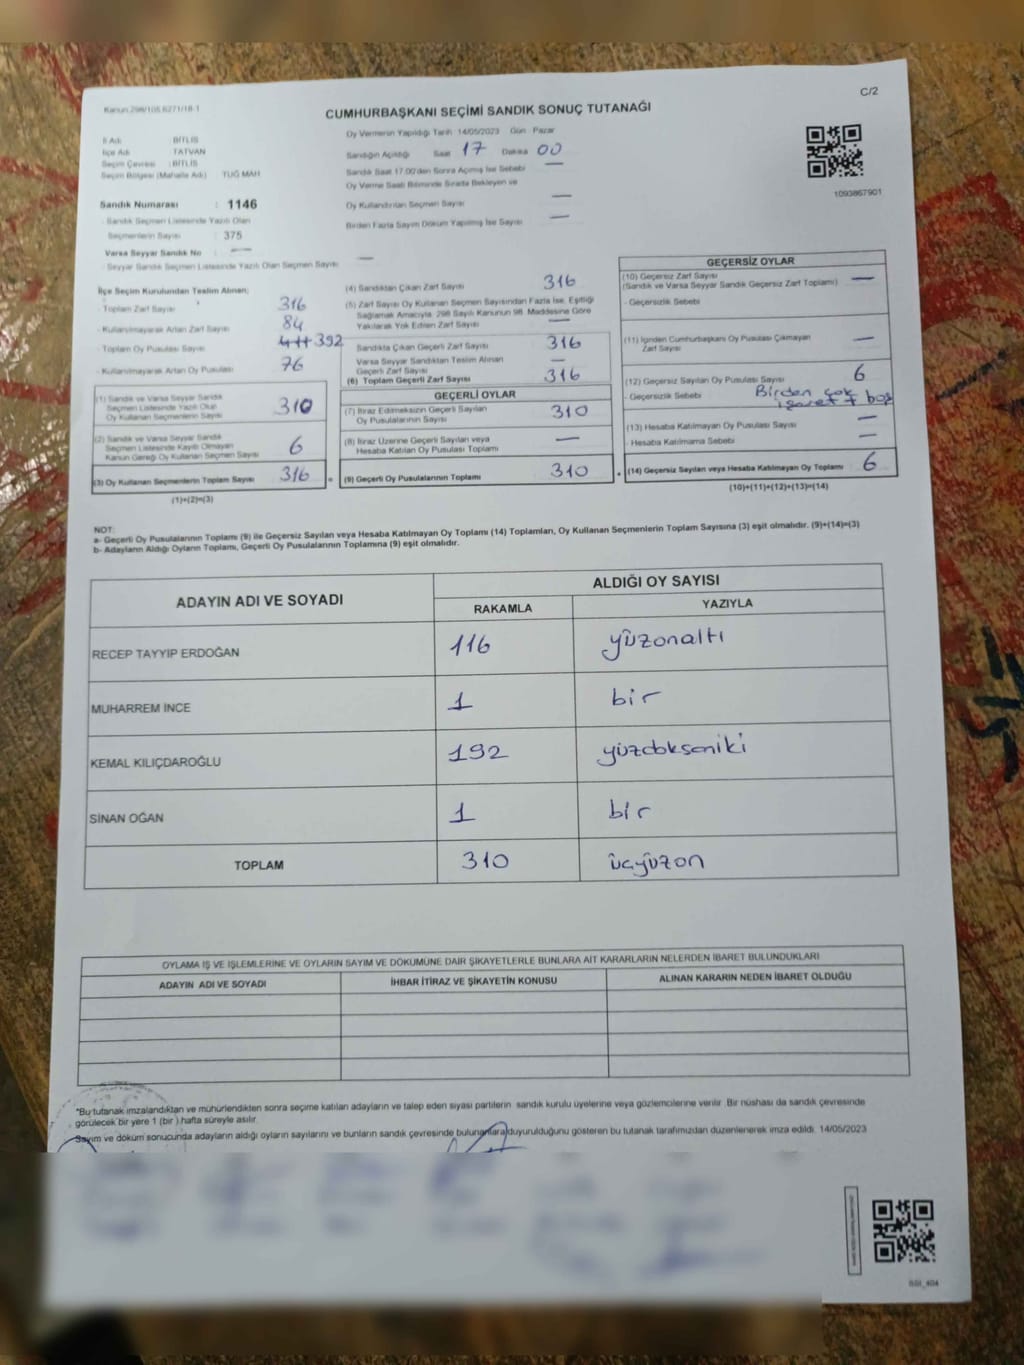 Kanun 298/105 6271/18-1
C/2
CUMHURBAŞKANI SEÇİMİ SANDIK SONUÇ TUTANAĞI
İl Adı BİTLİS
İlçe Adı TATVAN
Seçim Çevresi : BİTLİS
Seçim Bölgesi (Mahalle Adı) TUĞ MAH
Sandık Numarası : 1146
- Sandık Seçmen Listesinde Yazılı Olan
Seçmenlerin Sayısı : 375
Varsa Seyyar Sandık No : —
- Seyyar Sandık Seçmen Listesinde Yazılı Olan Seçmen Sayısı —
Oy Vermenin Yapıldığı Tarih 14/05/2023 Gün Pazar
Sandığın Açıldığı Saat 17 Dakika 00
Sandık Saat 17.00'den Sonra Açılmış İse Sebebi —
Oy Verme Saati Bitiminde Sırada Bekleyen ve
Oy Kullandırılan Seçmen Sayısı —
Birden Fazla Sayım Döküm Yapılmış İse Sayısı —
1093867901
İlçe Seçim Kurulundan Teslim Alınan;
- Toplam Zarf Sayısı 316
- Kullanılmayarak Artan Zarf Sayısı 84
- Toplam Oy Pusulası Sayısı 392
- Kullanılmayarak Artan Oy Pusulası 76
(1) Sandık ve Varsa Seyyar Sandık
Seçmen Listesinde Yazılı Olup
Oy Kullanan Seçmenlerin Sayısı 310
(2) Sandık ve Varsa Seyyar Sandık
Seçmen Listesinde Kayıtlı Olmayan
Kanun Gereği Oy Kullanan Seçmen Sayısı 6
(3) Oy Kullanan Seçmenlerin Toplam Sayısı 316
(1)+(2)=(3)
(4) Sandıktan Çıkan Zarf Sayısı 316
(5) Zarf Sayısı Oy Kullanan Seçmen Sayısından Fazla İse, Eşitliği
Sağlamak Amacıyla, 298 Sayılı Kanunun 98. Maddesine Göre
Yakılarak Yok Edilen Zarf Sayısı —
Sandıkta Çıkan Geçerli Zarf Sayısı 316
Varsa Seyyar Sandıktan Teslim Alınan
Geçerli Zarf Sayısı —
(6) Toplam Geçerli Zarf Sayısı 316
GEÇERLİ OYLAR
(7) İtiraz Edilmeksizin Geçerli Sayılan
Oy Pusulalarının Sayısı 310
(8) İtiraz Üzerine Geçerli Sayılan veya
Hesaba Katılan Oy Pusulası Toplamı —
(9) Geçerli Oy Pusulalarının Toplamı 310
GEÇERSİZ OYLAR
(10) Geçersiz Zarf Sayısı
(Sandık ve Varsa Seyyar Sandık Geçersiz Zarf Toplamı) —
- Geçersizlik Sebebi
(11) İçinden Cumhurbaşkanı Oy Pusulası Çıkmayan
Zarf Sayısı —
(12) Geçersiz Sayılan Oy Pusulası Sayısı 6
- Geçersizlik Sebebi Birden çok
işaret + boş
(13) Hesaba Katılmayan Oy Pusulası Sayısı —
- Hesaba Katılmama Sebebi —
(14) Geçersiz Sayılan veya Hesaba Katılmayan Oy Toplamı 6
(10)+(11)+(12)+(13)=(14)
NOT:
a- Geçerli Oy Pusulalarının Toplamı (9) ile Geçersiz Sayılan veya Hesaba Katılmayan Oy Toplamı (14) Toplamları, Oy Kullanan Seçmenlerin Toplam Sayısına (3) eşit olmalıdır. (9)+(14)=(3)
b- Adayların Aldığı Oyların Toplamı, Geçerli Oy Pusulalarının Toplamına (9) eşit olmalıdır.
ADAYIN ADI VE SOYADI ALDIĞI OY SAYISI
RAKAMLA YAZIYLA
RECEP TAYYİP ERDOĞAN 116 yüzonaltı
MUHARREM İNCE 1 bir
KEMAL KILIÇDAROĞLU 192 yüzdokseniki
SİNAN OĞAN 1 bir
TOPLAM 310 üçyüzon
OYLAMA İŞ VE İŞLEMLERİNE VE OYLARIN SAYIM VE DÖKÜMÜNE DAİR ŞİKAYETLERLE BUNLARA AİT KARARLARIN NELERDEN İBARET BULUNDUKLARI
ADAYIN ADI VE SOYADI İHBAR İTİRAZ VE ŞİKAYETİN KONUSU ALINAN KARARIN NEDEN İBARET OLDUĞU
*Bu tutanak imzalandıktan ve mühürlendikten sonra seçime katılan adayların ve talep eden siyasi partilerin sandık kurulu üyelerine veya gözlemcilerine verilir. Bir nüshası da sandık çevresinde
görülecek bir yere 1 (bir) hafta süreyle asılır.
Sayım ve döküm sonucunda adayların aldığı oyların sayılarını ve bunların sandık çevresinde bulunanlara duyurulduğunu gösteren bu tutanak tarafımızdan düzenlenerek imza edildi. 14/05/2023